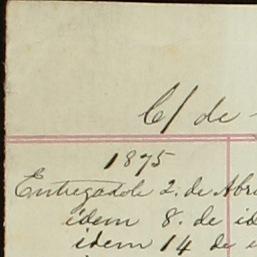 C/ de
1875
Entregadole 2. de Abri
idem 8. de id
idem 14 de i